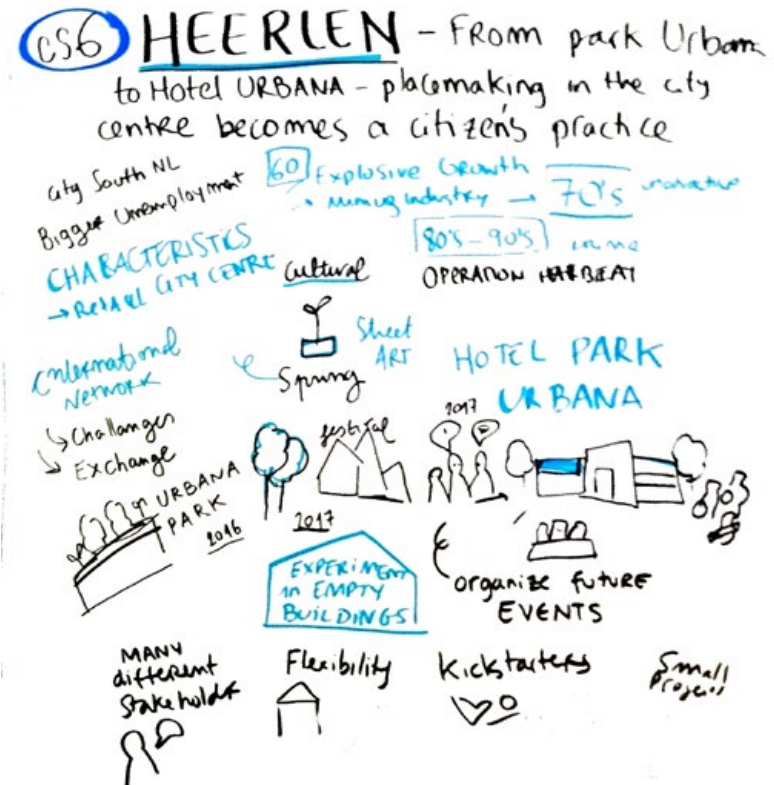 CS6 HEERLEN - FROM park Urbana
to Hotel URBANA - placemaking in the city
centre becomes a citizen's practice
City South NL
Bigger Unemployment
60 Explosive Growth
Mining industry → 70's
80's - 90's
OPERATION
CHARACTERISTICS
→ RETAIL CITY CENTRE
Cultural
Street
ART
Spring
International
NETWORK
Challanges
Exchange
HOTEL PARK
URBANA
2017
festival
URBANA
PARK
2016
2017
EXPERIMENT
in EMPTY
BUILDINGS
organize future
EVENTS
MANY
different
Stakeholds
Flexibility
Kickstarters
Small